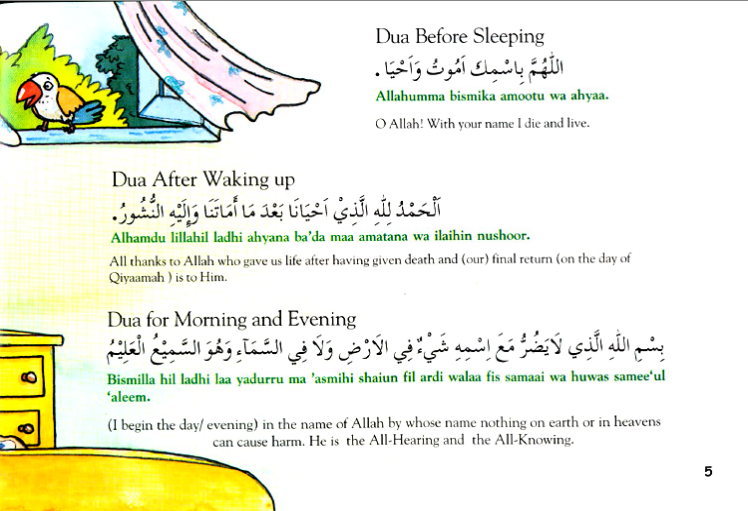 Dua Before Sleeping
اللّٰهُمَّ بِاسْمِكَ اَمُوتُ وَاَحْيَا .
Allahumma bismika amootu wa ahyaa.
O Allah! With your name I die and live.
Dua After Waking up
اَلْحَمْدُ لِلّٰهِ الَّذِيْ اَحْيَانَا بَعْدَ مَا أَمَاتَنَا وَإِلَيْهِ النُّشُورُ.
Alhamdu lillahil ladhi ahyana ba'da maa amatana wa ilaihin nushoor.
All thanks to Allah who gave us life after having given death and (our) final return (on the day of
Qiyaamah ) is to Him.
Dua for Morning and Evening
بِسْمِ اللهِ الَّذِي لَايَضُرُّ مَعَ اِسْمِهِ شَيْءٌ فِي الْاَرْضِ وَلَا فِي السَّمَآءِ وَهُوَ السَّمِيْعُ الْعَلِيْمُ
Bismilla hil ladhi laa yadurru ma 'asmihi shaiun fil ardi walaa fis samaai wa huwas samee'ul
'aleem.
(I begin the day/ evening) in the name of Allah by whose name nothing on earth or in heavens
can cause harm. He is the All-Hearing and the All-Knowing.
5